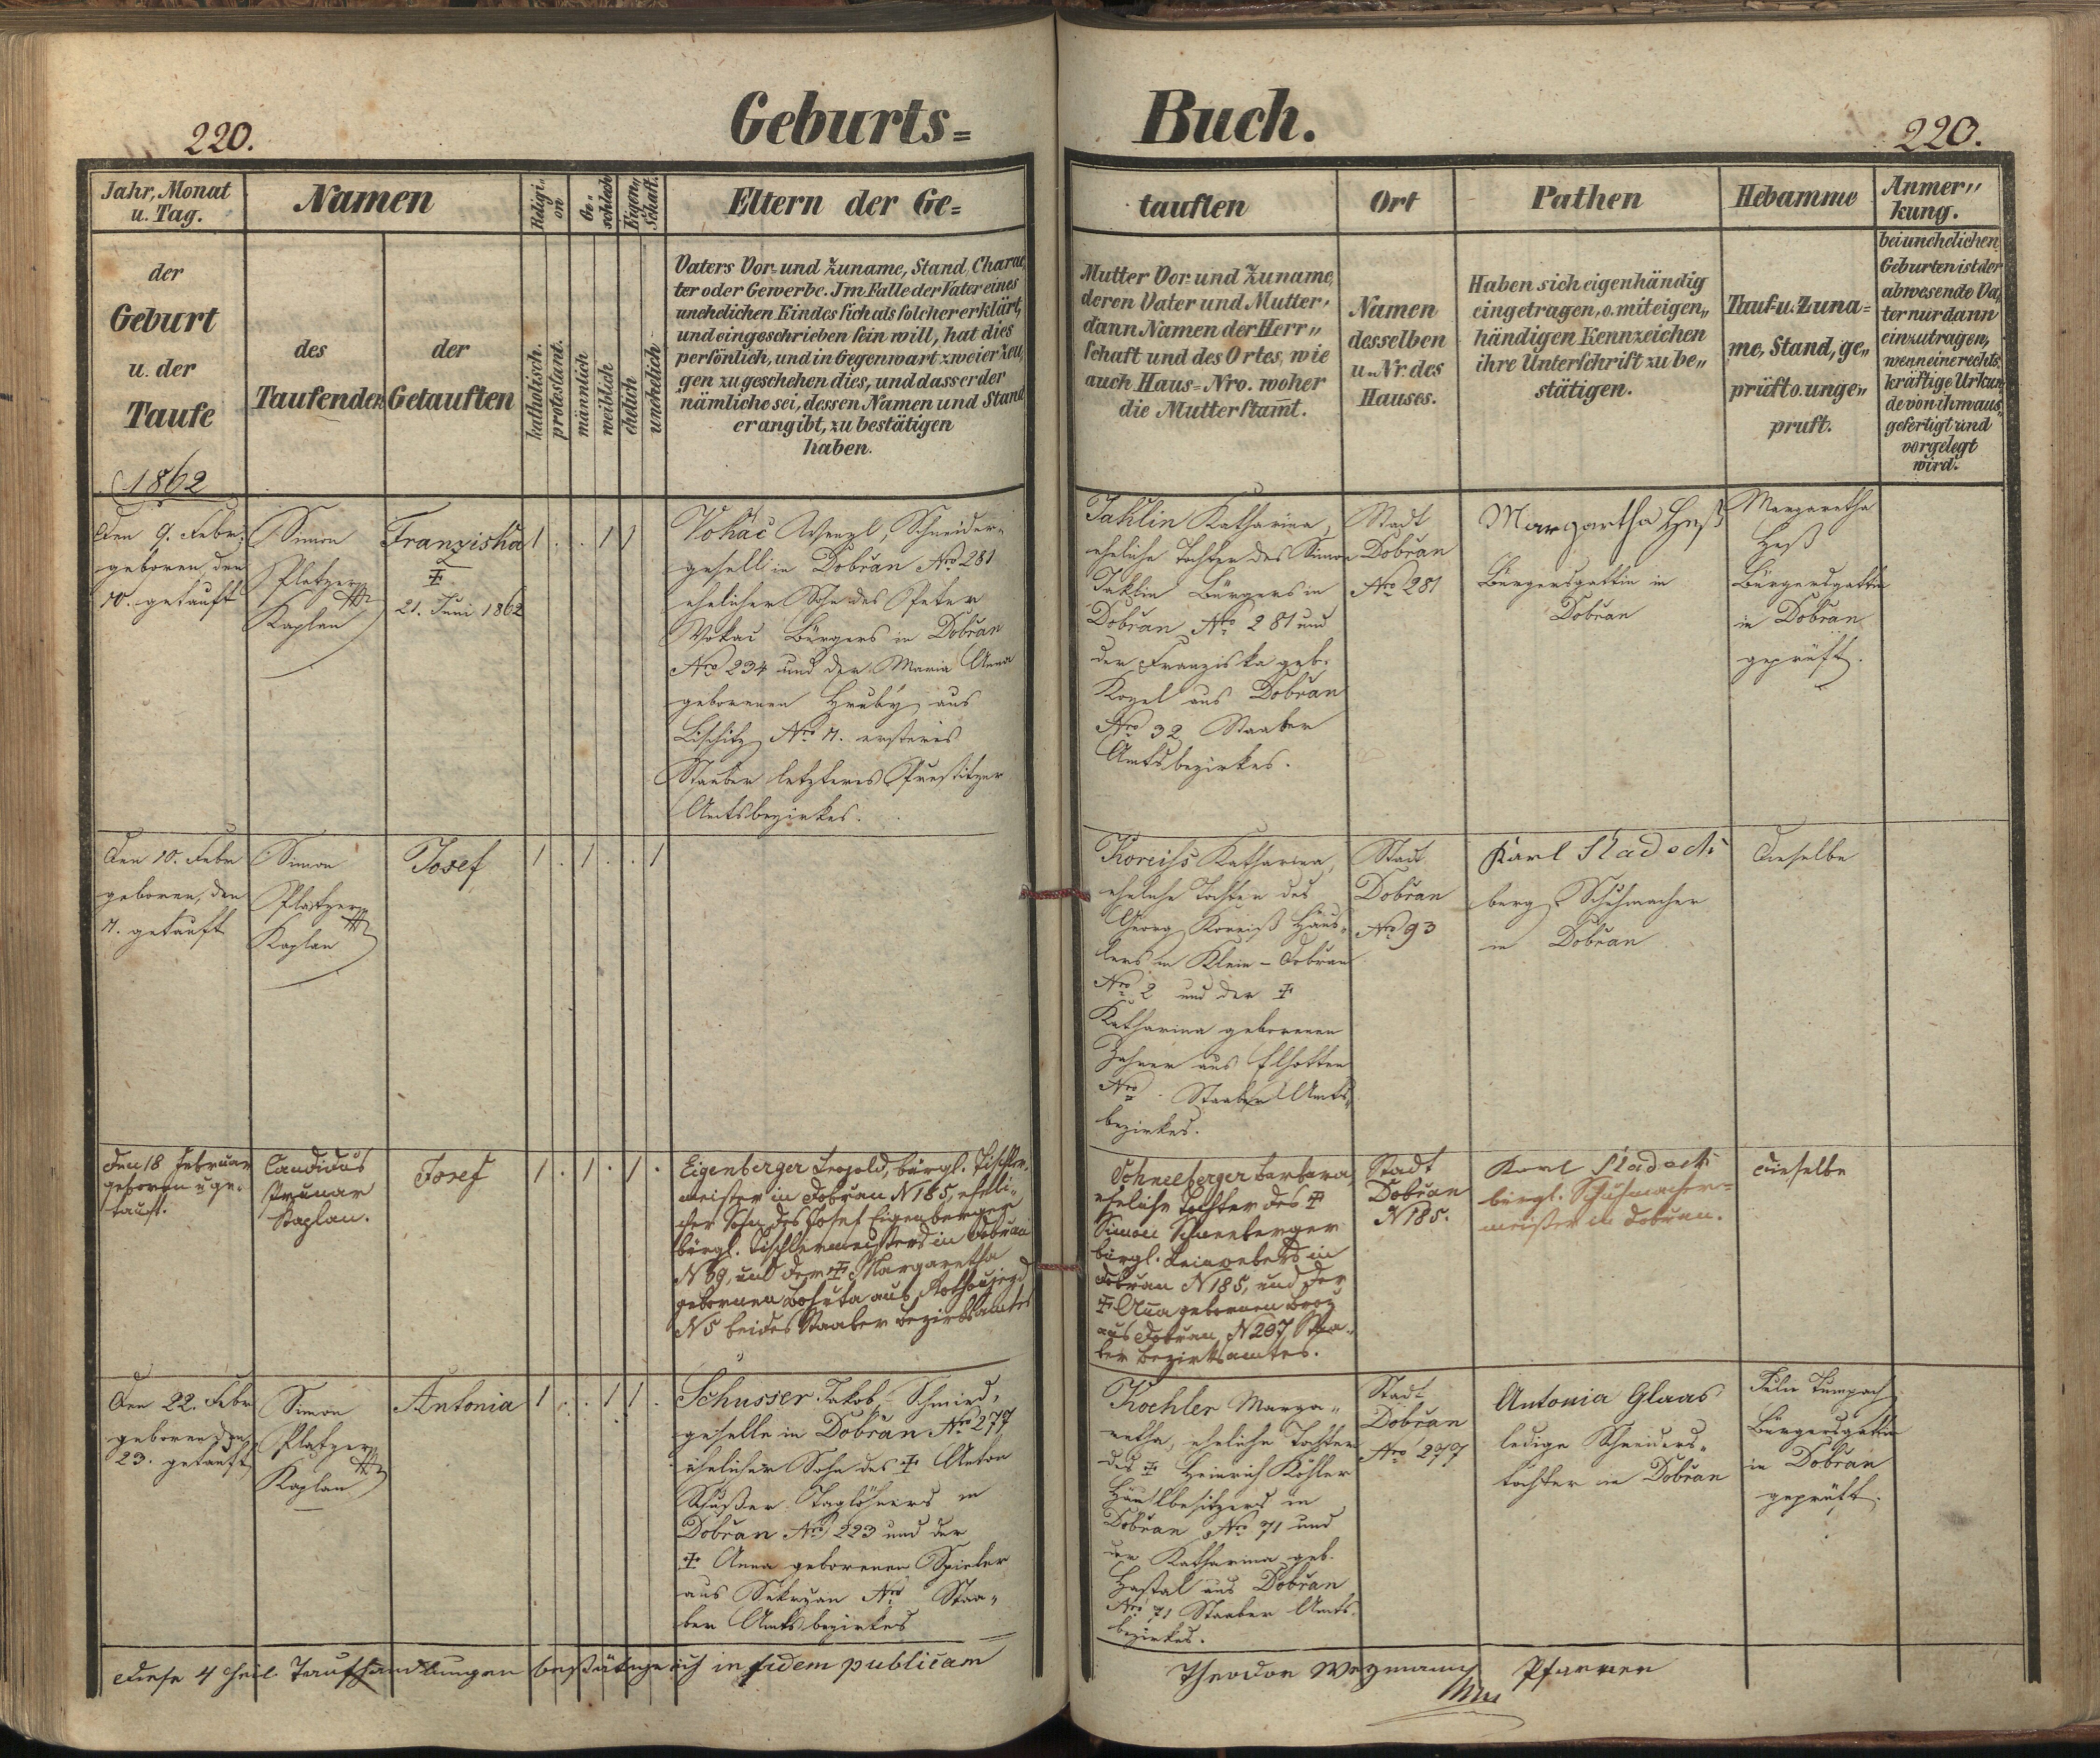 220.
Geburts=
Buch.
220.
Jahr, Monat
u. Tag.
Namen
Religi„
on
Ge„
schlech
Eigen„
schaft.
Eltern der Ge=
tauften
Ort
Pathen
Hebamme
Anmer„
kung.
der
Geburt
u. der
Taufe
1862
des
Taufenden
der
Getauften
katholisch.
protestant.
männlich
weiblich
ehelich
unehelich
Vaters Vor- und Zuname, Stand, Charac„
ter oder Gewerbe. Im Falle der Vater eines
unehelichen Kindes sich als solcher erklärt,
und eingeschrieben sein will, hat dies
persönlich, und in Gegenwart zweier Zeu„
gen zu geschehen dies, und dass er der
nämliche sei, dessen Namen und Stand
er angibt, zu bestätigen
haben.
Mutter Vor- und Zuname,
deren Vater und Mutter,
dann Namen der Herr„
schaft und des Ortes, wie
auch Haus=Nro. woher
die Mutter stam̄t.
Namen
desselben
u. Nr. des
Hauses.
Haben sich eigenhändig
eingetragen, o. mit eigen„
händigen Kennzeichen
ihre Unterschrift zu be„
stätigen.
Tauf- u. Zuna=
me, Stand, ge„
prüft o. unge„
pruft.
bei unehelichen
Geburten ist der
abwesende Va„
ter nur dann
einzutragen,
wenn eine rechts„
kräftige Urkun„
de von ihm aus„
gefertigt und
vorgelegt
wird.
Den 9. Febr.
geboren, den
10. getauft
Simon
Platzer
Kaplan
Franziska
21. Juni 1862
1 . . 1 1
Vokáč Wenzl, Schneider=
gesell in Dobřan Nro 281
ehelicher Sohn des Peter
Vokač Bürgers in Dobřan
Nro 234 und der Maria Anna
geborenen Hruby aus
Lischitz Nro 11. ersteres
Staaber letzteres Prestitzer
Amtsbezirkes.
Taklin Katharina,
eheliche Tochter des Simon
Taklin Bürgers in
Dobřan Nro 281 und
der Franziska geb.
Kozel aus Dobřan
Nro 32 Staaber
Amtsbezirkes.
Stadt
Dobřan
Nro 281
Margartha Heß
Bürgersgattin in
Dobřan
Margaretha
Heß
Bürgersgattin
in Dobřan
geprüft.
Den 10. Febr
geboren, den
11. getauft
Simon
Platzer
Kaplan
Josef
1 . 1 . . 1
Koreiss Katharina,
eheliche Tochter des
Georg Koreiß Häus=
lers in Klein-Dobřan
Nro 2 und der ‡
Katharina geborenen
aus Elhotten
Nro . Staaber Amts„
bezirkes.
Stadt
Dobřan
Nro 93
Karl Sladeck
berg. Schuhmacher
in Dobřan
Dieselbe
Den 18 Februar
geboren u ge-
tauft.
Candidus
Prunar
Kaplan.
Josef
1 . 1 . 1 .
Eigenberger Leopold, bürgl. Tischler-
meister in Dobřan N 185, eheli-
cher Sohn des Josef Eigenberger
bürgl. Tischlermeisters in Dobřan
N 39, und der ‡ Margaretha
gebornen aus Rothaujezd
N 5 beides Staaber Bezirksamtes
Schneeberger Barbara
eheliche Tochter des ‡
Simon Schneeberger
bürgl. Leinwebers in
Dobřan N 185, und der
‡ Anna gebornen
aus Dobřan N 207, Staa-
ber Bezirksamtes.
Stadt
Dobřan
N 185.
Karl Sladeck
bürgl. Schuhmacher=
meister in Dobřan.
Dieselbe
Den 22. Febr
geboren, den
23. getauft
Simon
Platzer
Kaplan
Antonia
1 . . 1 1 .
Schusser Jakob, Schmied-
geselle in Dobřan Nro 277
ehelicher Sohn des ‡ Anton
Schußer Taglöhners in
Dobřan Nro 223 und der
‡ Anna geborenen Spieler
aus Sekrzan Nro Staa„
ber Amtsbezirkes
Kochler Marga„
retha, eheliche Tochter
des ‡ Heinrich Köhler
Häuslbesitzers in
Dobřan Nro 71 und
der Katharina geb.
Hastal aus Dobřan
Nro 71 Staaber Amts-
bezirkes.
Stadt
Dobřan
Nro 277
Antonia Glaas
ledige Schneiders-
tochter in Dobřan
Bürgersgattin
in Dobřan
geprüft.
Diese 4 heil. Taufhandlungen bestätige ich in fidem publicam
Theodor Wezmann Pfarrer